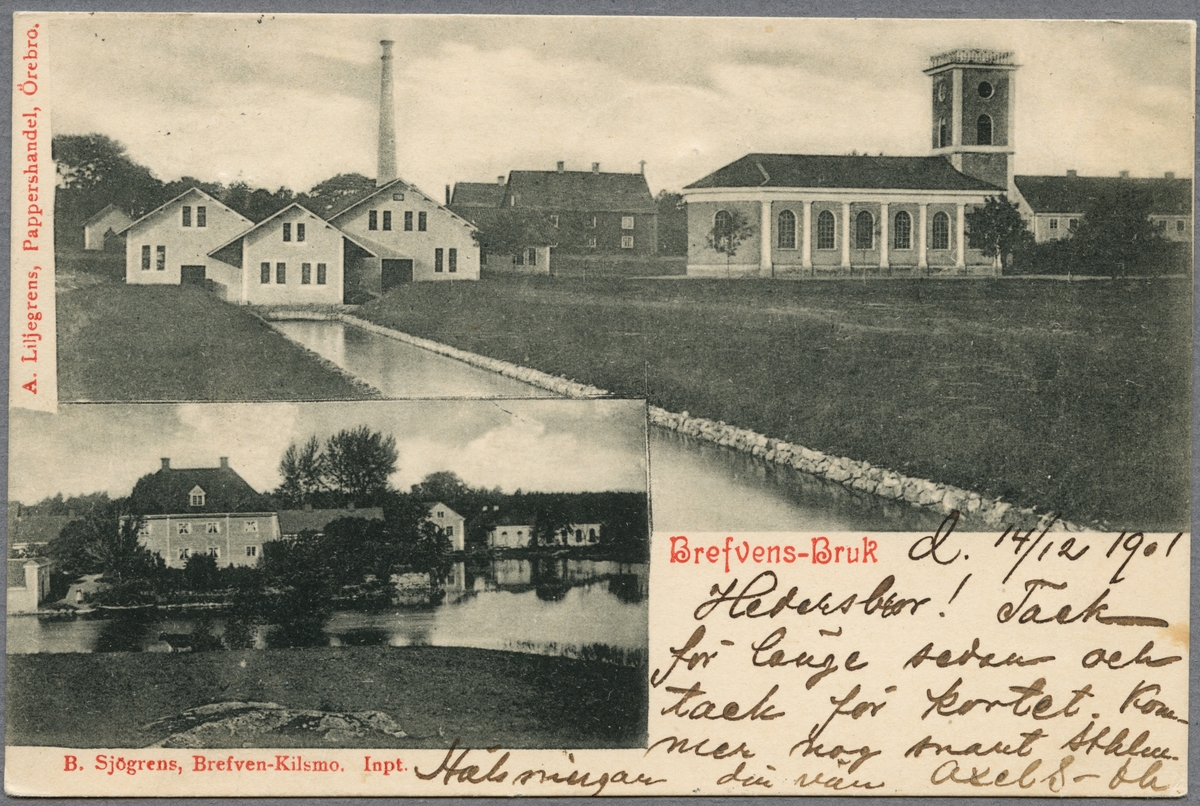 A. Liljegrens, Pappershandel, Örebro.
Brefvens-Bruk d. 14/12 1901
Hedersbror! Tack
för länge sedan och
tack för kortet. Kom-
mer nog snart Sthlm.
Hälsningar din vän Axel
B. Sjögrens, Brefven-Kilsmo. Inpt.